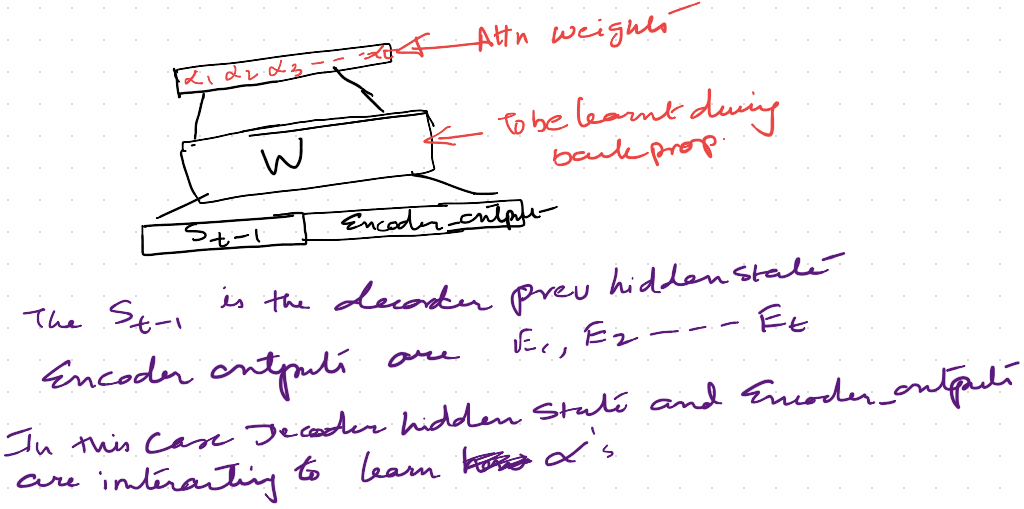 Attn weights
α1 α2 α3 - - - αt
To be learnt during
back prop.
W
St-1 Encoder_output
The St-1 is the decorder prev hidden state
Encoder outputs are E1, E2 ---- Et
In this case Decoder hidden state and Encoder_outputs
are interacting to learn α's